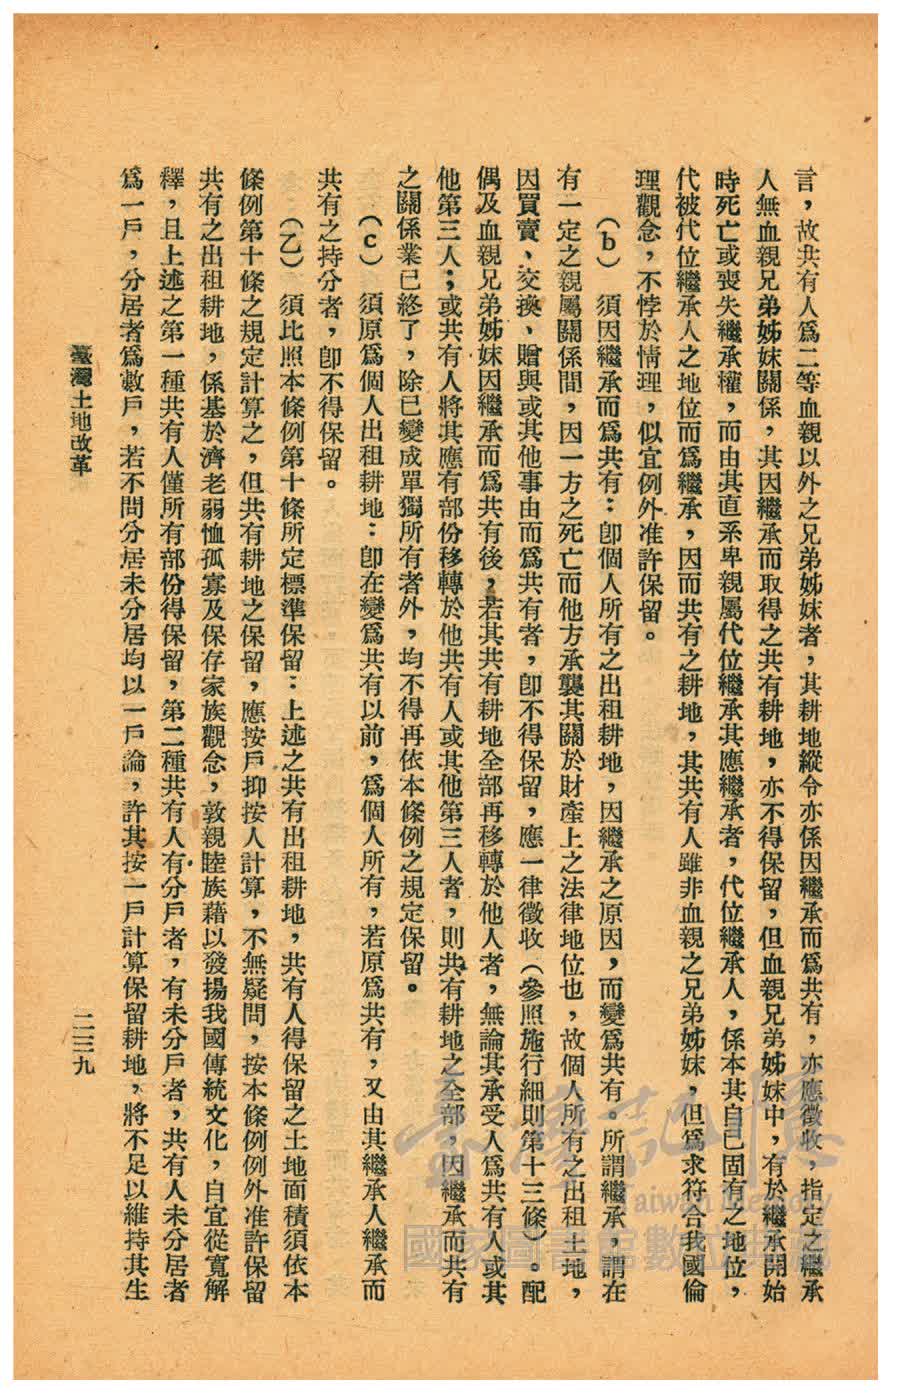 言，故共有人爲二等血親以外之兄弟姊妹者，其耕地縱令亦係因繼承而爲共有，亦應徵收，指定之繼承
人無血親兄弟姊妹關係，其因繼承而取得之共有耕地，亦不得保留，但血親兄弟姊妹中，有於繼承開始
時死亡或喪失繼承權，而由其直系卑親屬代位繼承其應繼承者，代位繼承人，係本其自己固有之地位，
代被代位繼承人之地位而爲繼承，因而共有之耕地，其共有人雖非血親之兄弟姊妹，但爲求符合我國倫
理觀念，不悖於情理，似宜例外准許保留。
（b）　須因繼承而爲共有：卽個人所有之出租耕地，因繼承之原因，而變爲共有。所謂繼承，謂在
有一定之親屬關係間，因一方之死亡而他方承襲其關於財產上之法律地位也，故個人所有之出租土地，
因買賣、交換、贈與或其他事由而爲共有者，卽不得保留，應一律徵收（參照施行細則第十三條）。配
偶及血親兄弟姊妹因繼承而爲共有後，若其共有耕地全部再移轉於他人者，無論其承受人爲共有人或其
他第三人；或共有人將其應有部份移轉於他共有人或其他第三人者，則共有耕地之全部，因繼承而共有
之關係業已終了，除已變成單獨所有者外，均不得再依本條例之規定保留。
（c）　須原爲個人出租耕地：卽在變爲共有以前，爲個人所有，若原爲共有，又由其繼承人繼承而
共有之持分者，卽不得保留。
（乙）　須比照本條例第十條所定標準保留：上述之共有出租耕地，共有人得保留之土地面積須依本
條例第十條之規定計算之，但共有耕地之保留，應按戶抑按人計算，不無疑問，按本條例例外准許保留
共有之出租耕地，係基於濟老弱恤孤寡及保存家族觀念，敦親睦族藉以發揚我國傳統文化，自宜從寬解
釋，且上述之第一種共有人僅所有部份得保留，第二種共有人有分戶者，有未分戶者，共有人未分居者
爲一戶，分居者爲數戶，若不問分居未分居均以一戶論，許其按一戶計算保留耕地，將不足以維持其生
臺灣土地改革
二三九
臺灣記憶
Taiwan Memory
國家圖書館數位典藏